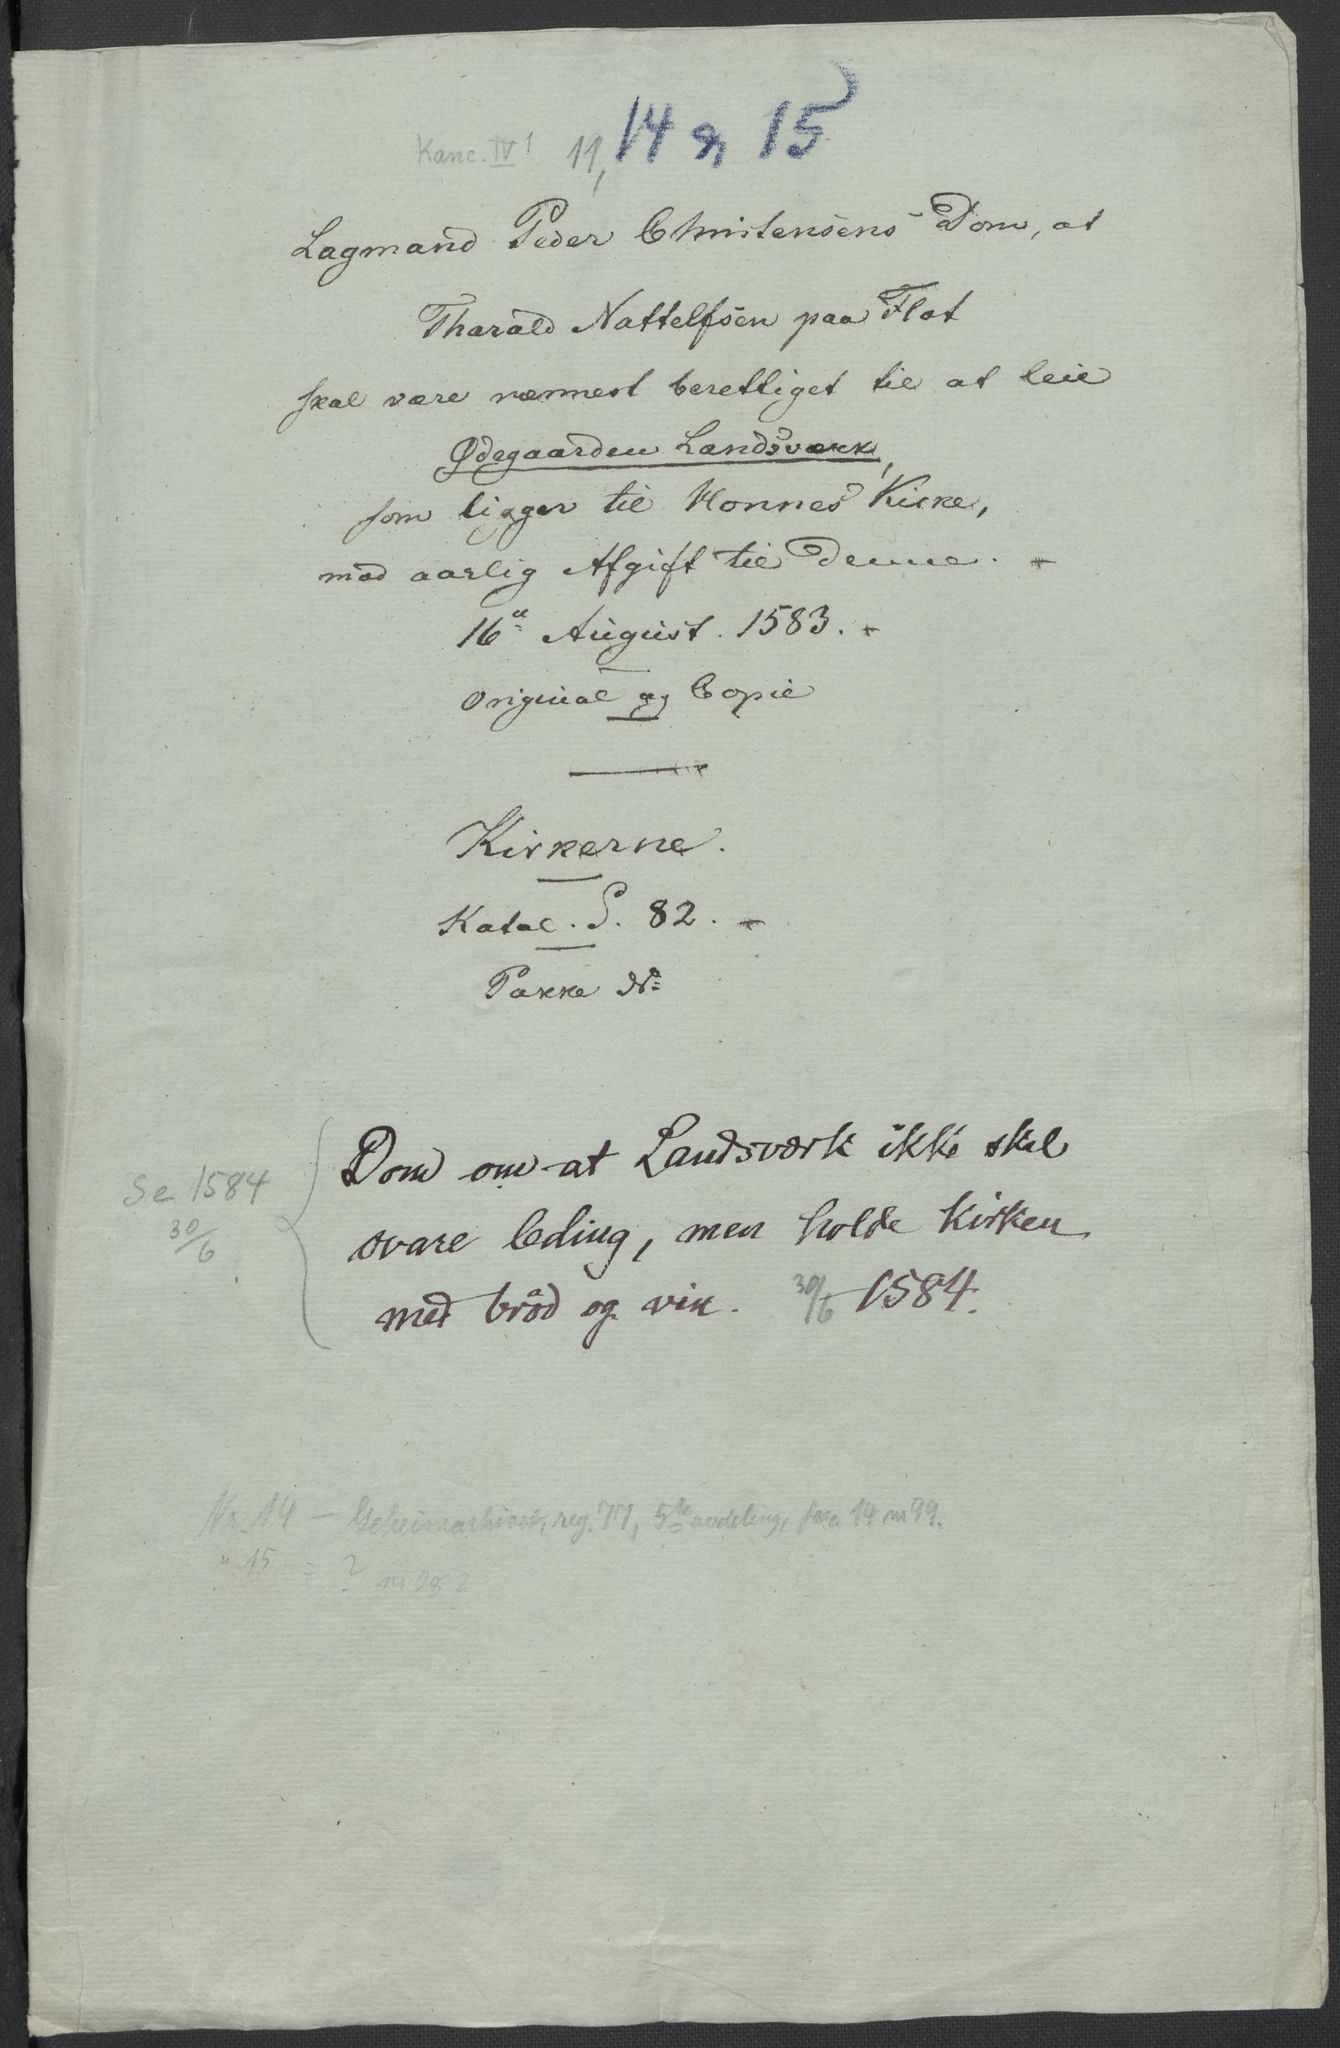 Kanc. IV 1 11, 14 & 15
Lagmand Peder Christensens Dom, at
Tharald Nattelfsen paa Flat
skal være nærmest berettiget til at leie
Ødegaarden Landsværk,
som ligger til Honnes Kirke,
mod aarlig Afgift til denne.
16de August. 1583.
Original og Copie
Kirkerne.
Katal. S. 82.
Pakke No
Dom om at Landsværk ikke skal
Se 1584
svare leding, men holde kirken
30/6
med brød og vin. 30/6 1584.
Nr. 14 – Geheimarkivet, reg. 77, 5te avdeling, fasc 14 nr 99.
" 15 = ?